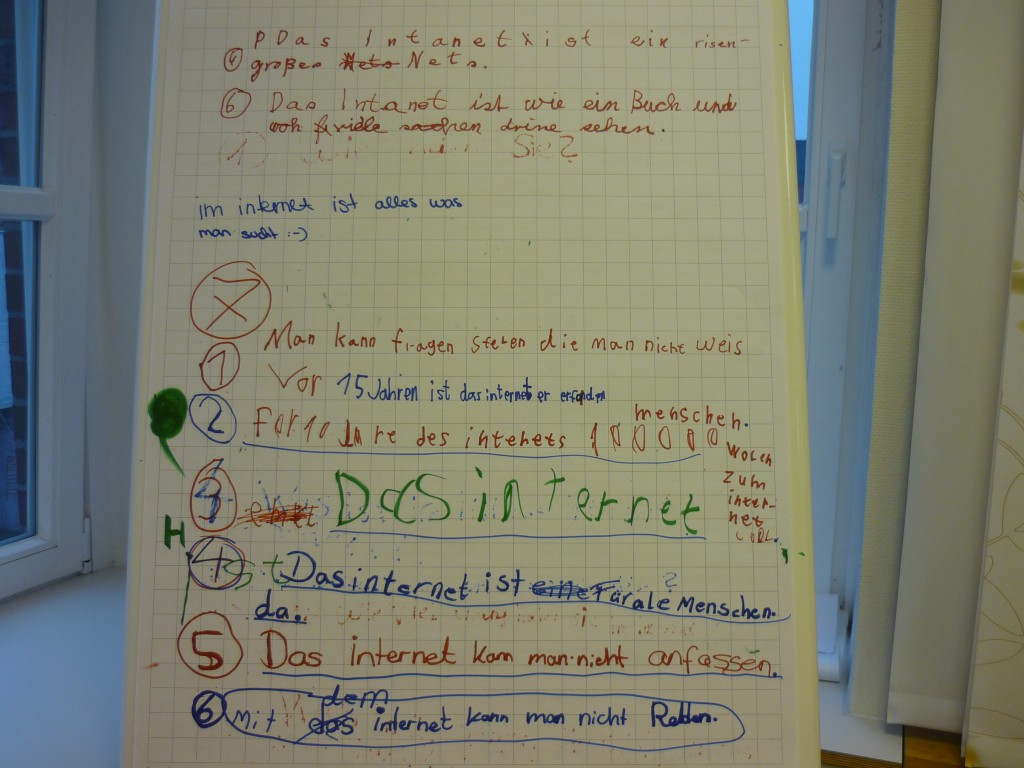 PDas Intanet ist ein risen-
④ großes Nets.
⑥ Das Intanet ist wie ein Buch und
drine sehen.
① Sie?
im internet ist alles was
man sucht :-)
Man kann fragen stelen die man nicht weis
① Vor 15 Jahren ist das internet er erfunden
menschen.
② For 10 Jare des internets 100000
woren
zum
inter-
net
③ DaS internet
H
④ Das internet ist eine Fürale Menschen.
da.
⑤ Das internet kann man nicht anfassen.
dem
⑥ Mit das internet kann man nicht Redden.